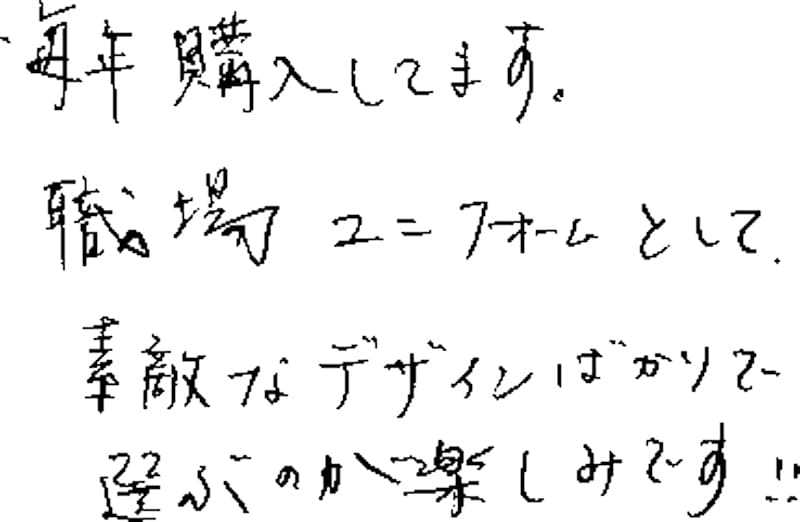 毎年購入してます。
職場ユニフォームとして、
素敵なデザインばかりで
選ぶのが楽しみです!!